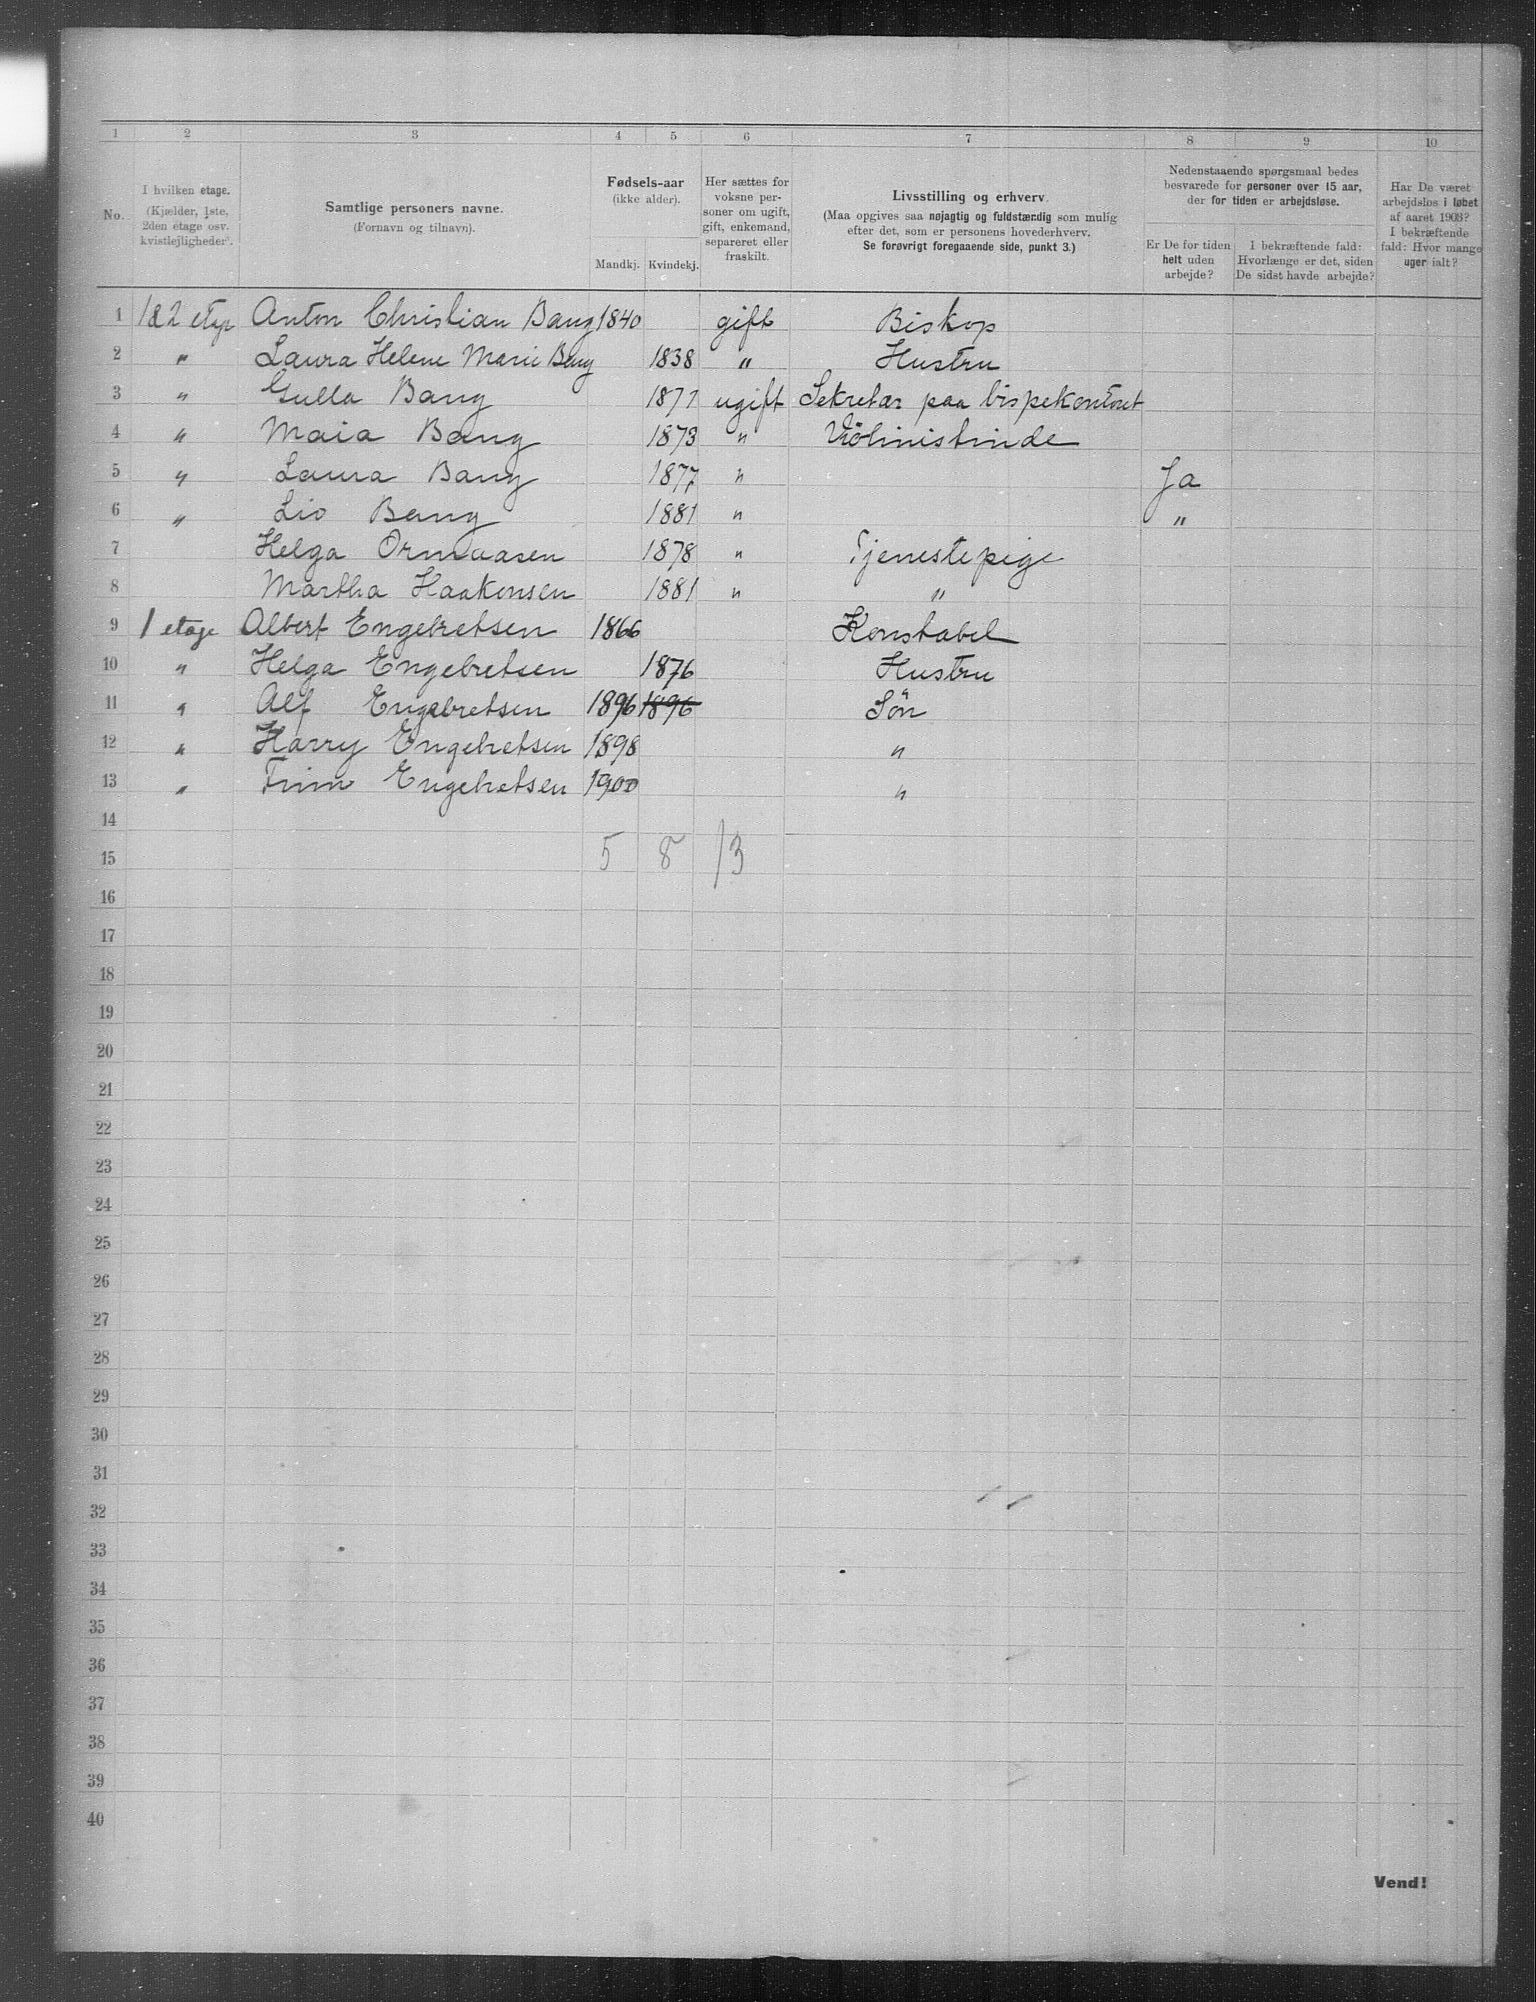 1 2 3 4 5 6 7 8 9 10
No.
I hvilken etage.
(Kjælder, 1ste,
2den etage osv.
kvistlejligheder).
Samtlige personers navne.
(Fornavn og tilnavn).
Fødsels-aar
(ikke alder).
Mandkj. Kvindekj.
Her sættes for
voksne per-
soner om ugift,
gift, enkemand,
separeret eller
fraskilt.
Livsstilling og erhverv.
(Maa opgives saa nøjagtig og fuldstændig som mulig
efter det, som er personens hovederhverv.
Se forøvrigt foregaaende side, punkt 3.)
Nedenstaaende spørgsmaal bedes
besvarede for personer over 15 aar,
der for tiden er arbejdsløse.
Er De for tiden
helt uden
arbejde?
I bekræftende fald:
Hvorlænge er det, siden
De sidst havde arbejde?
Har De været
arbejdsløs i løbet
af aaret 1903?
I bekræftende
fald: Hvor mange
uger ialt?
1 1&2 etg Anton Christian Bang 1840 gift Biskop
2 " Laura Helene Marie Bang 1838 " Hustru
3 " Gulla Bang 1871 ugift Sekretær paa bispekontoret
4 " Maia Bang 1873 " Violinistinde
5 " Laura Bang 1877 " Ja
6 " Liv Bang 1881 " "
7 Helga Ormaasen 1878 " Tjenestepige
8 Martha Haakensen 1881 " "
9 1 etage Albert Engebretsen 1866 Konstabel
10 " Helga Engebretsen 1876 Hustru
11 " Alf Engebretsen 1896 1896 Sön
12 " Harry Engebretsen 1898 "
13 " Finn Engebretsen 1900 "
14
15 5 8 13
16
17
18
19
20
21
22
23
24
25
26
27
28
29
30
31
32
33
34
35
36
37
38
39
40
Vend!